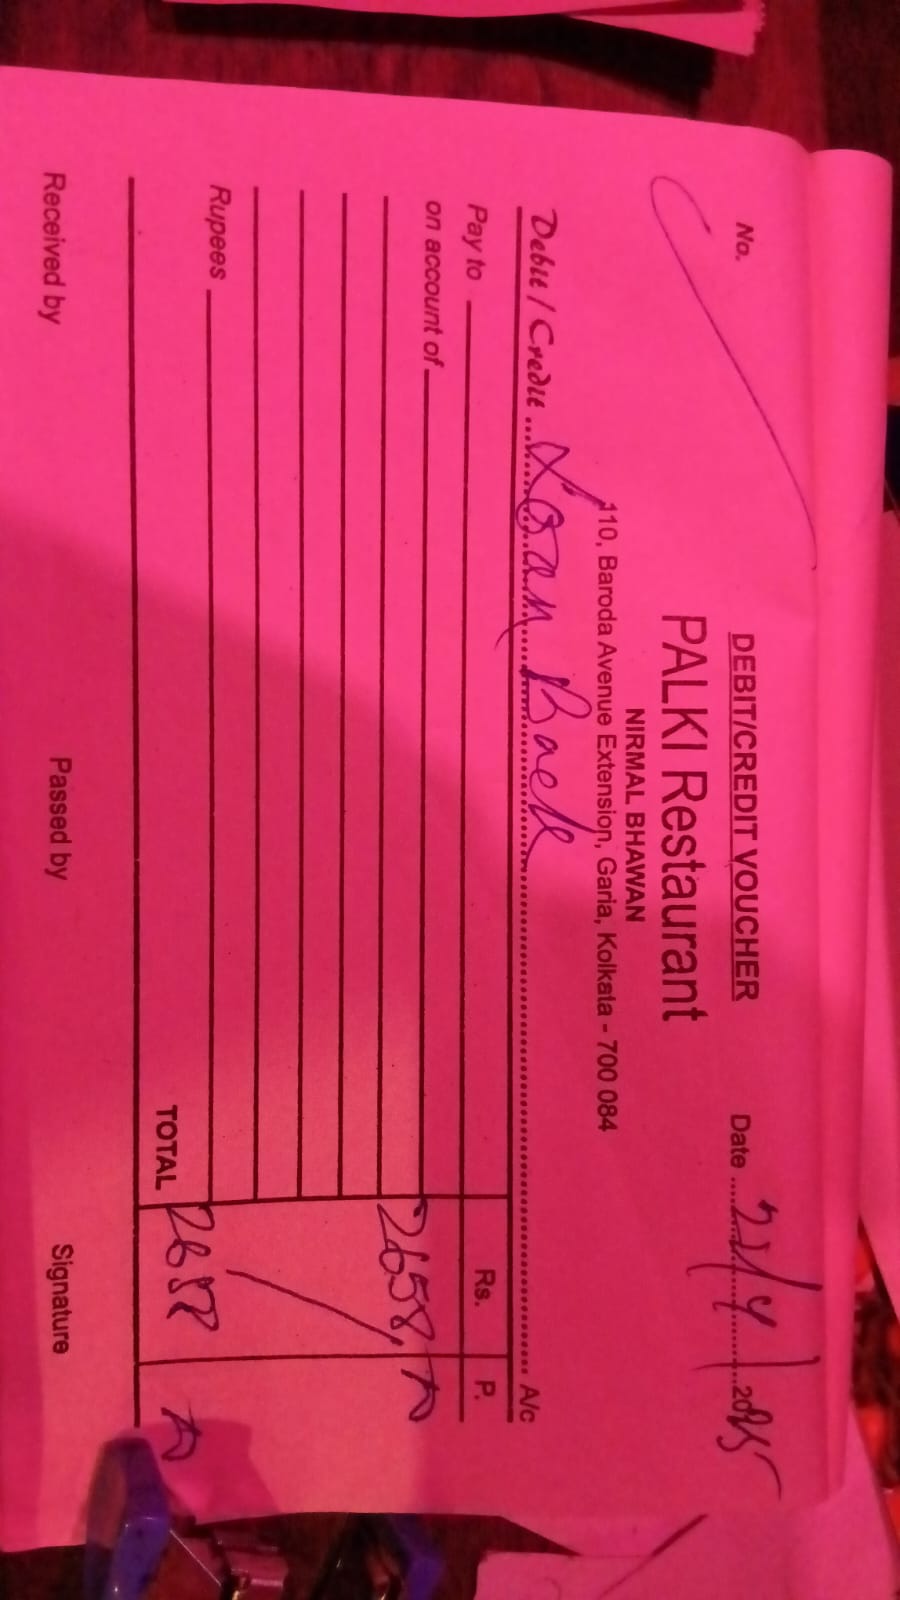 No.
DEBIT/CREDIT VOUCHER
PALKI Restaurant
NIRMAL BHAWAN
110, Baroda Avenue Extension, Garia, Kolkata - 700 084
Date 22/4/2025
Debit / Credit Loan Back A/c
Pay to Rs. P.
on account of 2658
Rupees
TOTAL 2658
Received by Passed by Signature